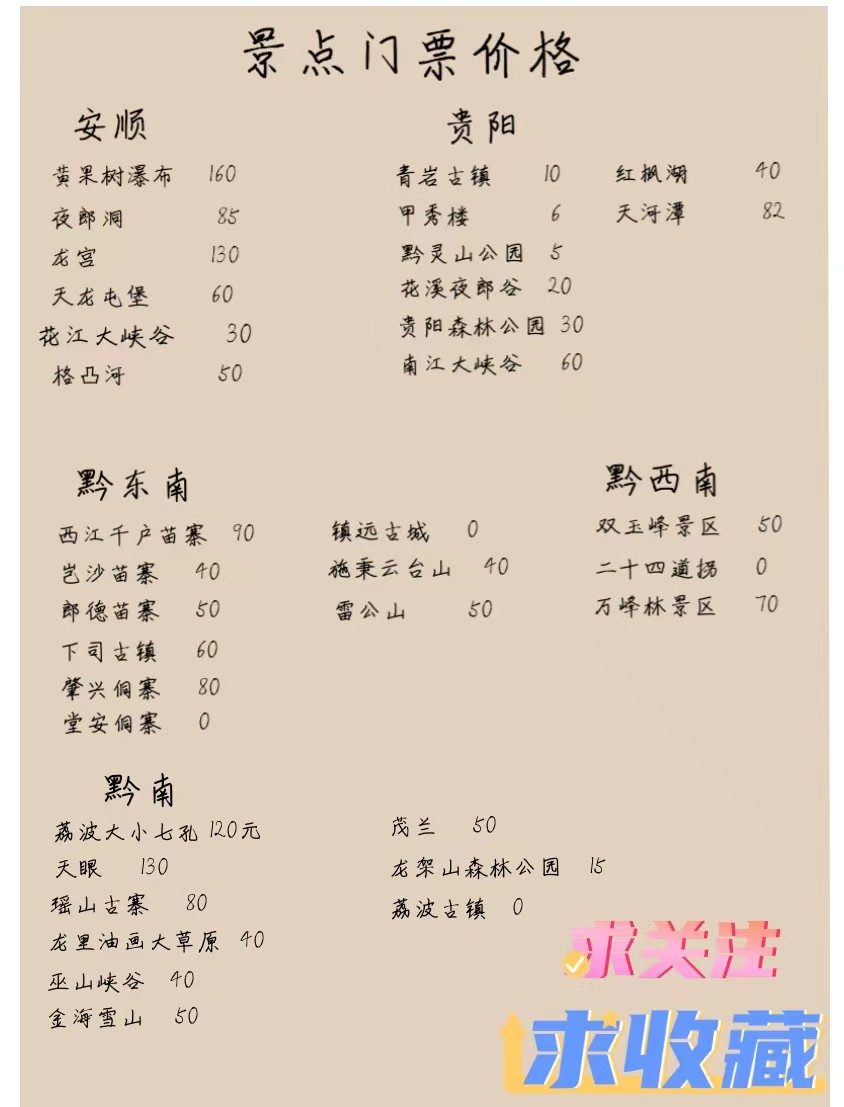 景点门票价格
安顺
黄果树瀑布 160
夜郎洞 85
龙宫 130
天龙屯堡 60
花江大峡谷 30
格凸河 50
贵阳
青岩古镇 10 红枫湖 40
甲秀楼 6 天河潭 82
黔灵山公园 5
花溪夜郎谷 20
贵阳森林公园 30
南江大峡谷 60
黔东南
西江千户苗寨 90 镇远古城 0
岜沙苗寨 40 施秉云台山 40
郎德苗寨 50 雷公山 50
下司古镇 60
肇兴侗寨 80
堂安侗寨 0
黔西南
双玉峰景区 50
二十四道拐 0
万峰林景区 70
黔南
荔波大小七孔 120元 茂兰 50
天眼 130 龙架山森林公园 15
瑶山古寨 80 荔波古镇 0
龙里油画大草原 40
巫山峡谷 40
金海雪山 50
求关注
求收藏